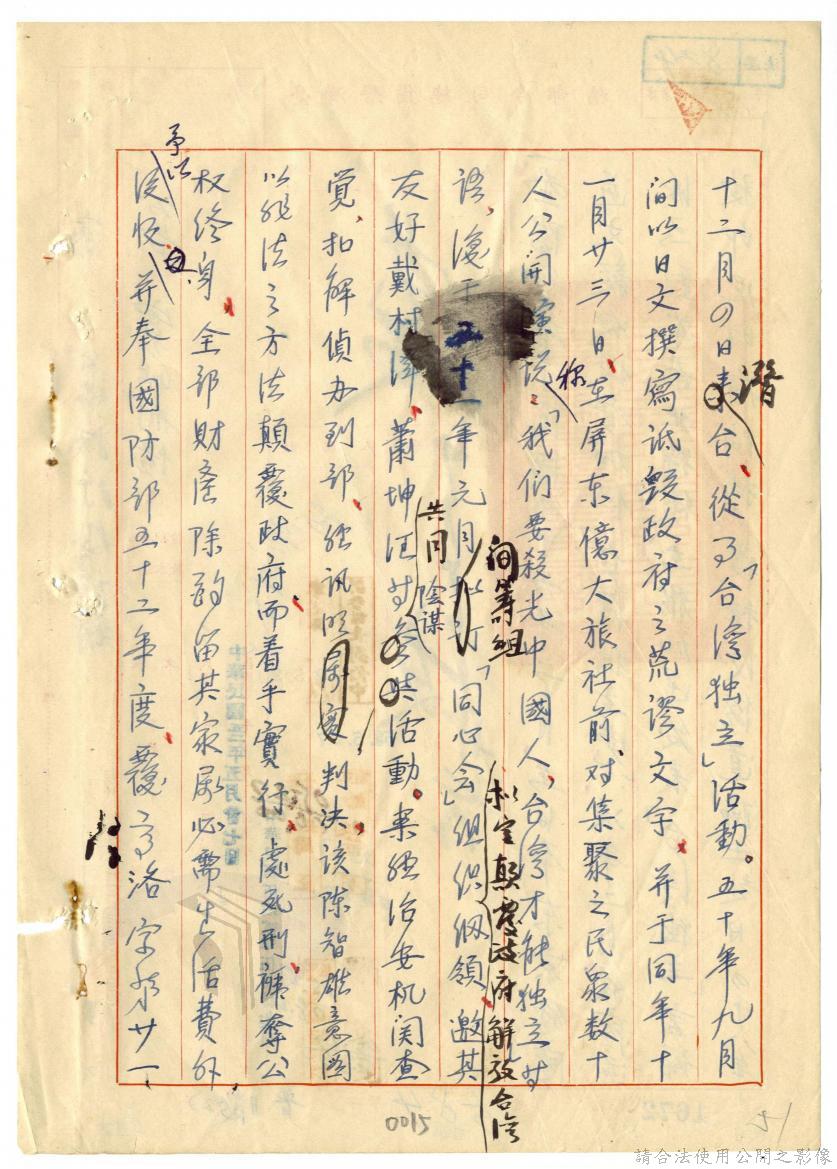 十二月四日來潛台、從事「台湾独立」活動。五十年九月
间以日文撰寫诋毀政府之荒謬文字、并于同年十
一月廿三日、在屏东億大旅社前、对集聚之民众数十
人公開演说、称：「我们要殺光中國人、台湾才能独立」等
語、復于五十一年元月间筹组「同心会」組织纲领、拟定颠覆政府解放台湾、邀其
友好戴村泽、蕭坤旺等共同陰谋活動。案经治安机関查
覚、扣解偵办到部、经讯明属实、判决、该陈智雄意图
以非法之方法颠覆政府而着手實行、處死刑褫奪公
权终身、全部财產除酌留其家属必需生活費外
予以
没收、并奉國防部五十二年度覆高洛字第廿一、
0015
請合法使用公開之影像